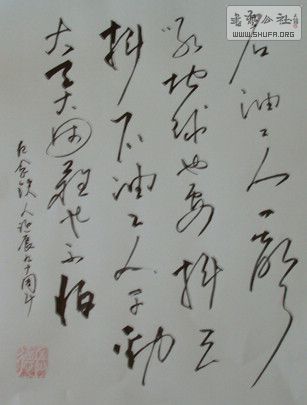 石油工人一声
吼地球也要抖三
抖石油工人干劲
大天大困难也不怕
纪念铁人诞辰九十周年
书法公社
WWW.SHUFA.ORG